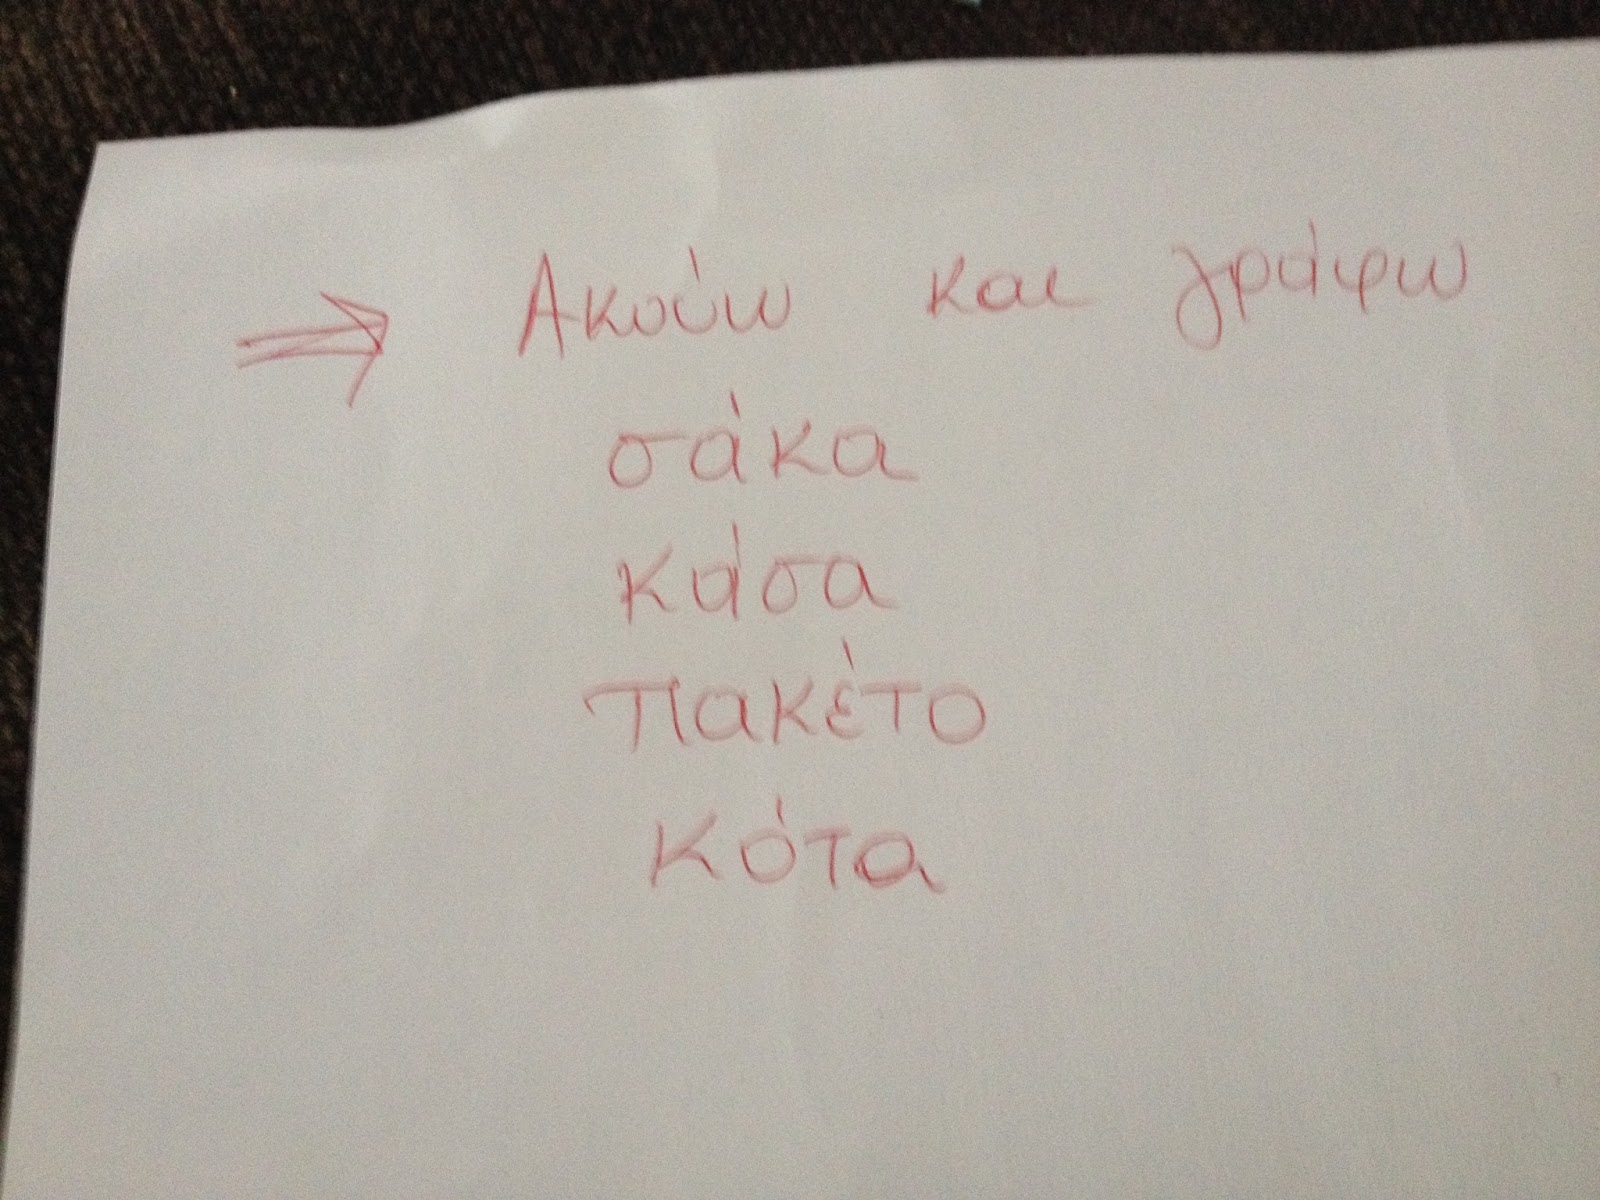 ⇒ Ακούω και γράφω
σάκα
κάσα
πακέτο
κότα